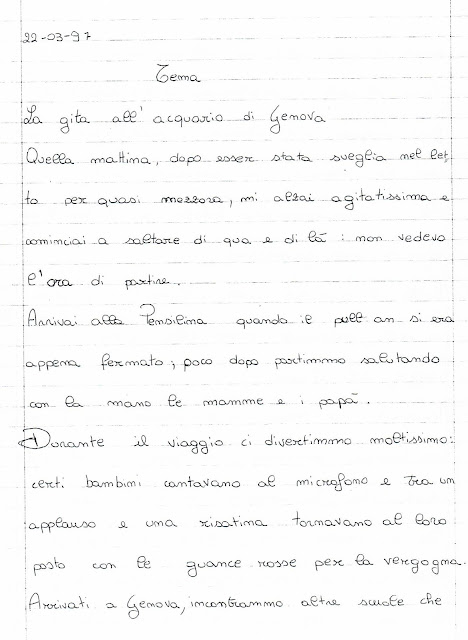 22-03-97
Tema
La gita all' acquario di Genova
Quella mattina, dopo esser stata sveglia nel let,
to per quasi mezzora, mi alzai agitatissima e
cominciai a saltare di qua e di là : non vedevo
l'ora di partire.
Arrivai alla Pensilina quando il pull an si era
appena fermato; poco dopo partimmo salutando
con la mano le mamme e i papà.
Durante il viaggio ci divertimmo moltissimo:
certi bambini cantavano al microfono e tra un
applauso e una risatina tornavano al loro
posto con le guance rosse per la vergogna.
Arrivati a Genova, incontrammo altre scuole che